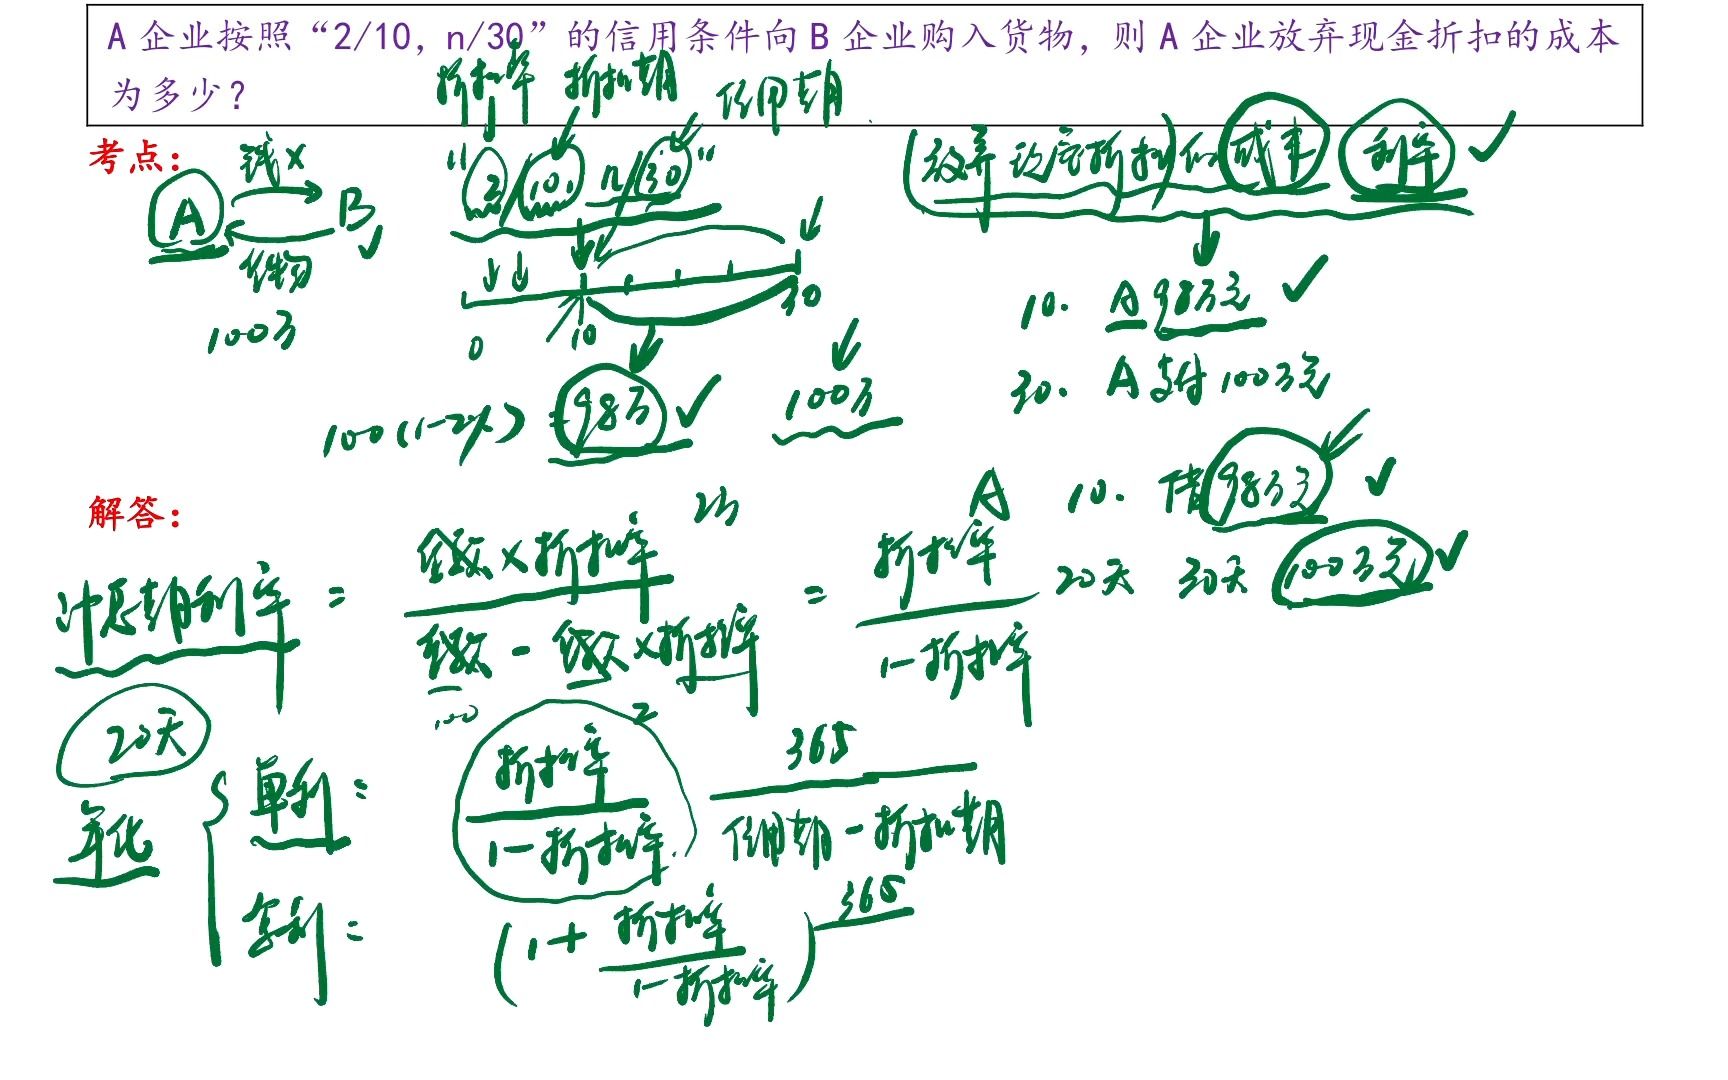 A 企业按照“2/10，n/30”的信用条件向 B 企业购入货物，则 A 企业放弃现金折扣的成本
为多少？
折扣率 折扣期 信用期
考点：
钱 X
A B
货物
100万
“2/10, n/30”
(放弃现金折扣)的成本 利率
0 10 30
10. A 98万元
30. A 支付 100万元
100(1-2%) = 98万 100万
解答：
A 10. 借 98万元
20天 30天 100万元
计息期利率 = 金额×折扣率 / 金额 - 金额×折扣率 = 折扣率 / 1-折扣率
2万
100
2
20天
年化
单利 = 折扣率 / 1-折扣率 365 / 信用期-折扣期
复利 = (1+ 折扣率 / 1-折扣率) 365